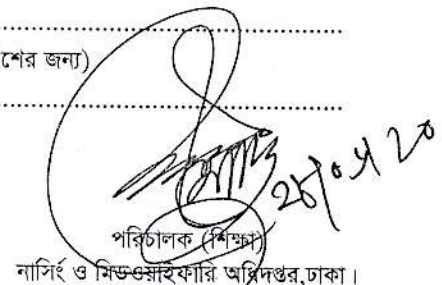 শের জন্য)
পরিচালক (শিক্ষা)
নার্সিং ও মিডওয়াইফারি অধিদপ্তর,ঢাকা।